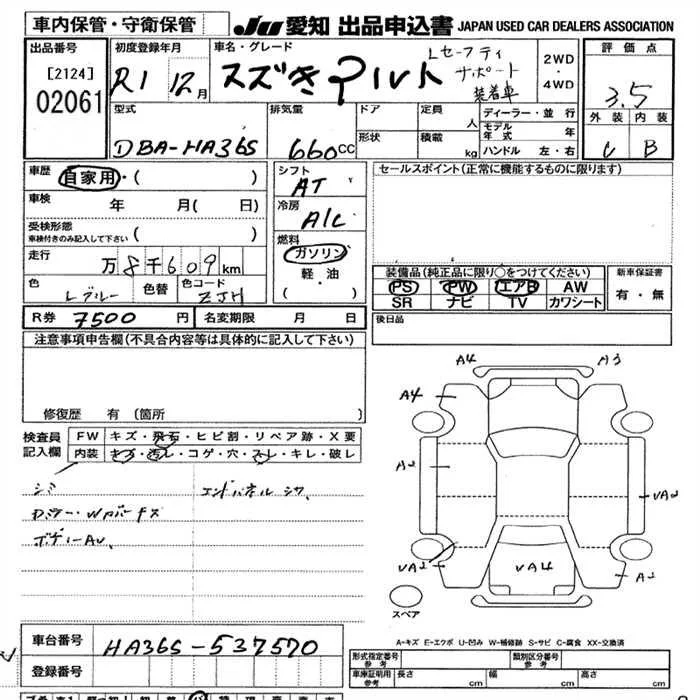 車内保管・守衛保管
JU 愛知 出品申込書 JAPAN USED CAR DEALERS ASSOCIATION
出品番号
[2124]
02061
初度登録年月
R1 12月
車名・グレード
スズキ アルト
Lセーフティ
サポート
装着車
2WD
・
4WD
評価点
3.5
外装 内装
C B
型式
DBA-HA36S
排気量
660cc
ドア
形状
定員
人
積載
kg
ディーラー・並行
モデル年式 年
ハンドル 左・右
車歴
自家用・( )
車検 年 月( 日)
受検形態
車検付きのみ記入して下さい ( )
走行
万8千609km
色
Lブルー
色替
色コード
ZJH
シフト
AT
冷房
A/C
燃料
ガソリン
軽・油
( )
セールスポイント(正常に機能するものに限ります)
装備品(純正品に限り○をつけてください)
PS PW エアB AW
SR ナビ TV カワシート
新車保証書
有・無
R券 7500 円
名変期限 月 日
後日品
注意事項申告欄(不具合内容等は具体的に記入して下さい)
修復歴 有(箇所 )
検査員
記入欄
FW キズ・飛石・ヒビ割・リペア跡・X要
内装 キズ・汚レ・コゲ・穴・スレ・キレ・破レ
シミ
エンドパネルシワ
Dミラー・Wバーキズ
ボディーAU
A4 A3
A4
A2
UA2
UA2
UA4
A2
スペア
A-キズ E-エクボ U-凹み W-補修跡 S-サビ C-腐食 XX-交換済
車台番号
HA36S-537570
登録番号
形式指定番号
参考
類別区分番号
参考
車庫証明用
参考
長さ cm
幅 cm
高さ cm